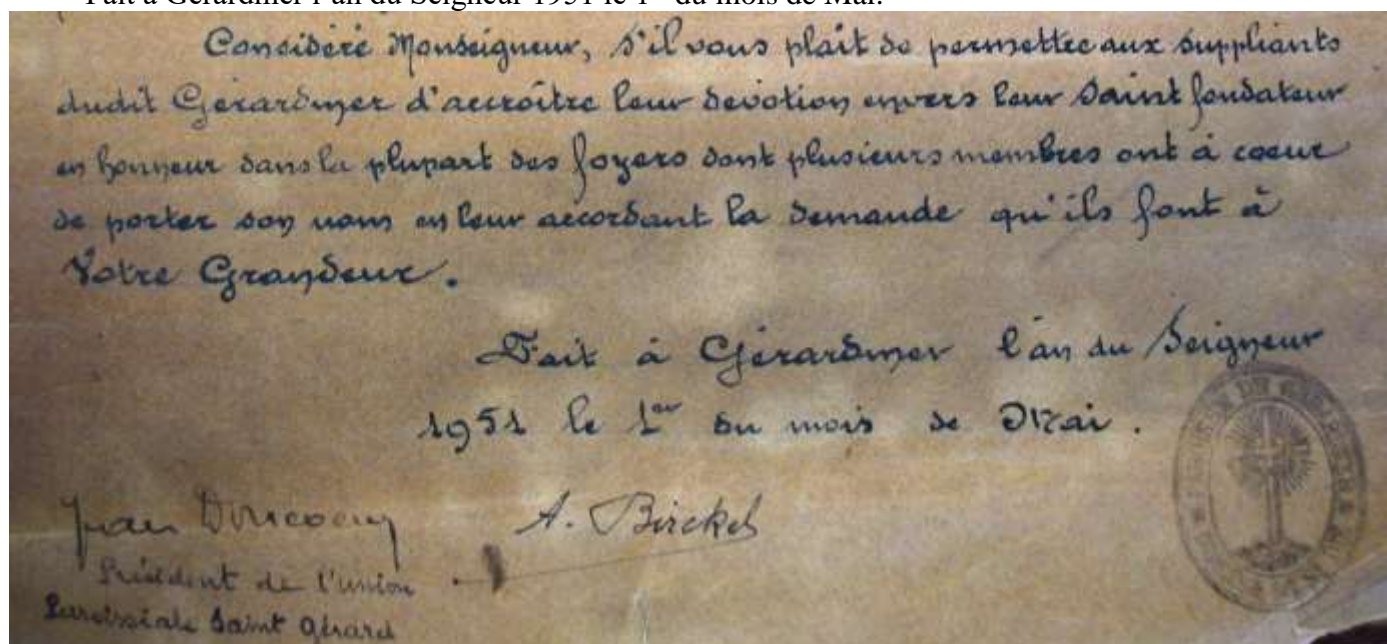 Fait à Gérardmer l'an du Seigneur 1951 le 1er du mois de Mai.
Considéré Monseigneur, s'il vous plaît de permettre aux suppliants
dudit Gérardmer d'accroître leur dévotion envers leur Saint fondateur
en honneur dans la plupart des foyers dont plusieurs membres ont à coeur
de porter son nom en leur accordant la demande qu'ils font à
Votre Grandeur.
Fait à Gérardmer l'an du Seigneur
1951 le 1er du mois de Mai.
Jean A. Birckel
Président de l'Union
Paroissiale Saint Gérard